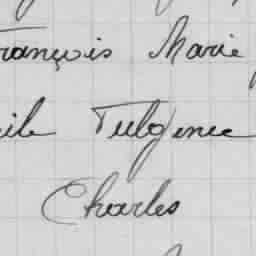 François Marie
ile Fulgence
Charles